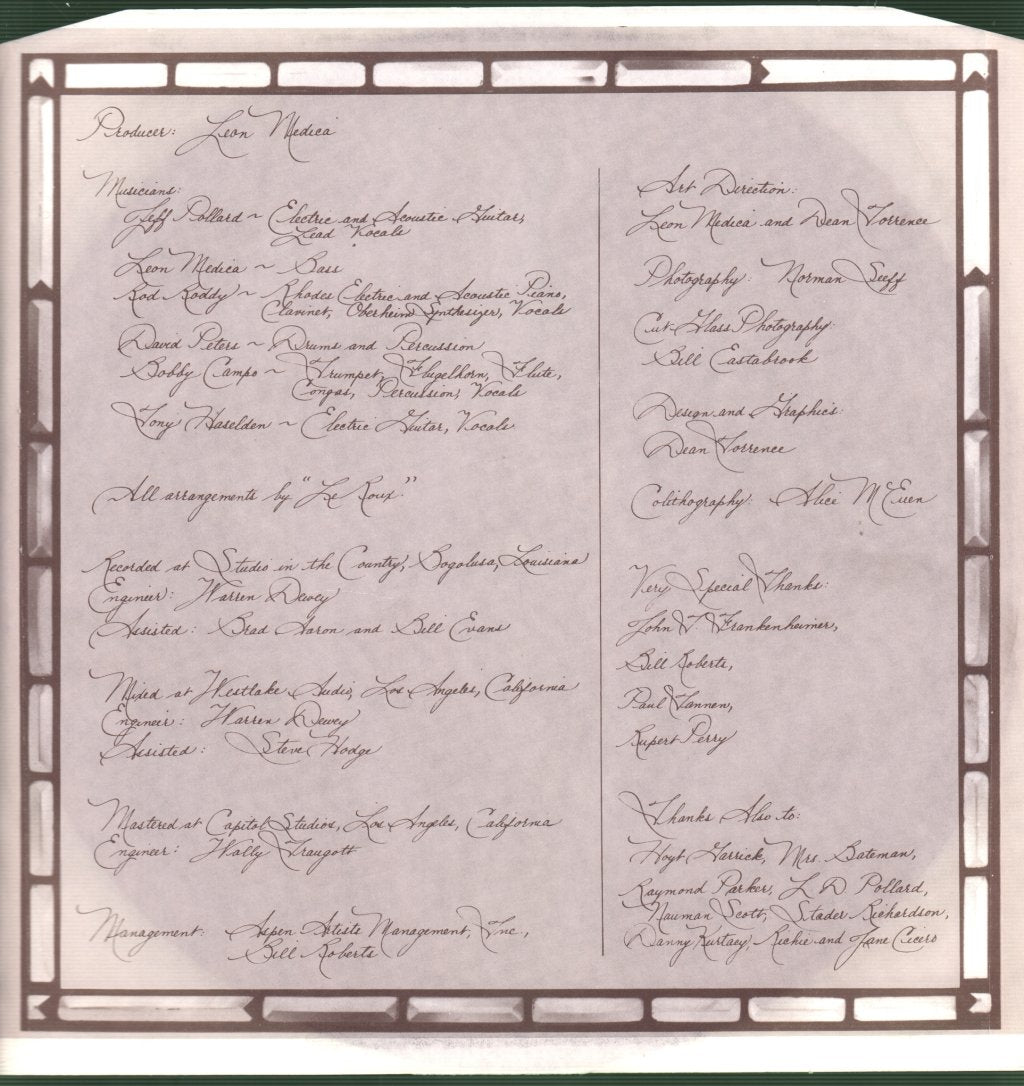 Producer: Leon Medica
Musicians:
Jeff Pollard ~ Electric and Acoustic Guitar,
Lead Vocals
Leon Medica ~ Bass
Rod Roddy ~ Rhodes Electric and Acoustic Piano,
Clavinet, Oberheim Synthesizer, Vocals
David Peters ~ Drums and Percussion
Bobby Campo ~ Trumpet, Flugelhorn, Flute,
Congas, Percussion, Vocals
Tony Haselden ~ Electric Guitar, Vocals
All arrangements by "Le Roux."
Recorded at Studio in the Country, Bogolusa, Louisiana
Engineer: Warren Dewey
Assisted: Brad Aaron and Bill Evans
Mixed at Westlake Audio, Los Angeles, California
Engineer: Warren Dewey
Assisted: Steve Hodge
Mastered at Capitol Studios, Los Angeles, California
Engineer: Wally Traugott
Management: Aspen Artists Management, Inc.,
Bill Roberts
Art Direction:
Leon Medica and Dean Torrence
Photography: Norman Seeff
Cut Glass Photography:
Bill Eastabrook
Design and Graphics:
Dean Torrence
Colithography: Alice McEuen
Very Special Thanks:
John T. Frankenheimer,
Bill Roberts,
Paul Tannen,
Rupert Perry
Thanks Also to:
Hoyt Garrick, Mrs. Bateman,
Raymond Parker, L D Pollard,
Nauman Scott, Stader Richardson,
Danny Kurtaey, Richie and Jane Cicero